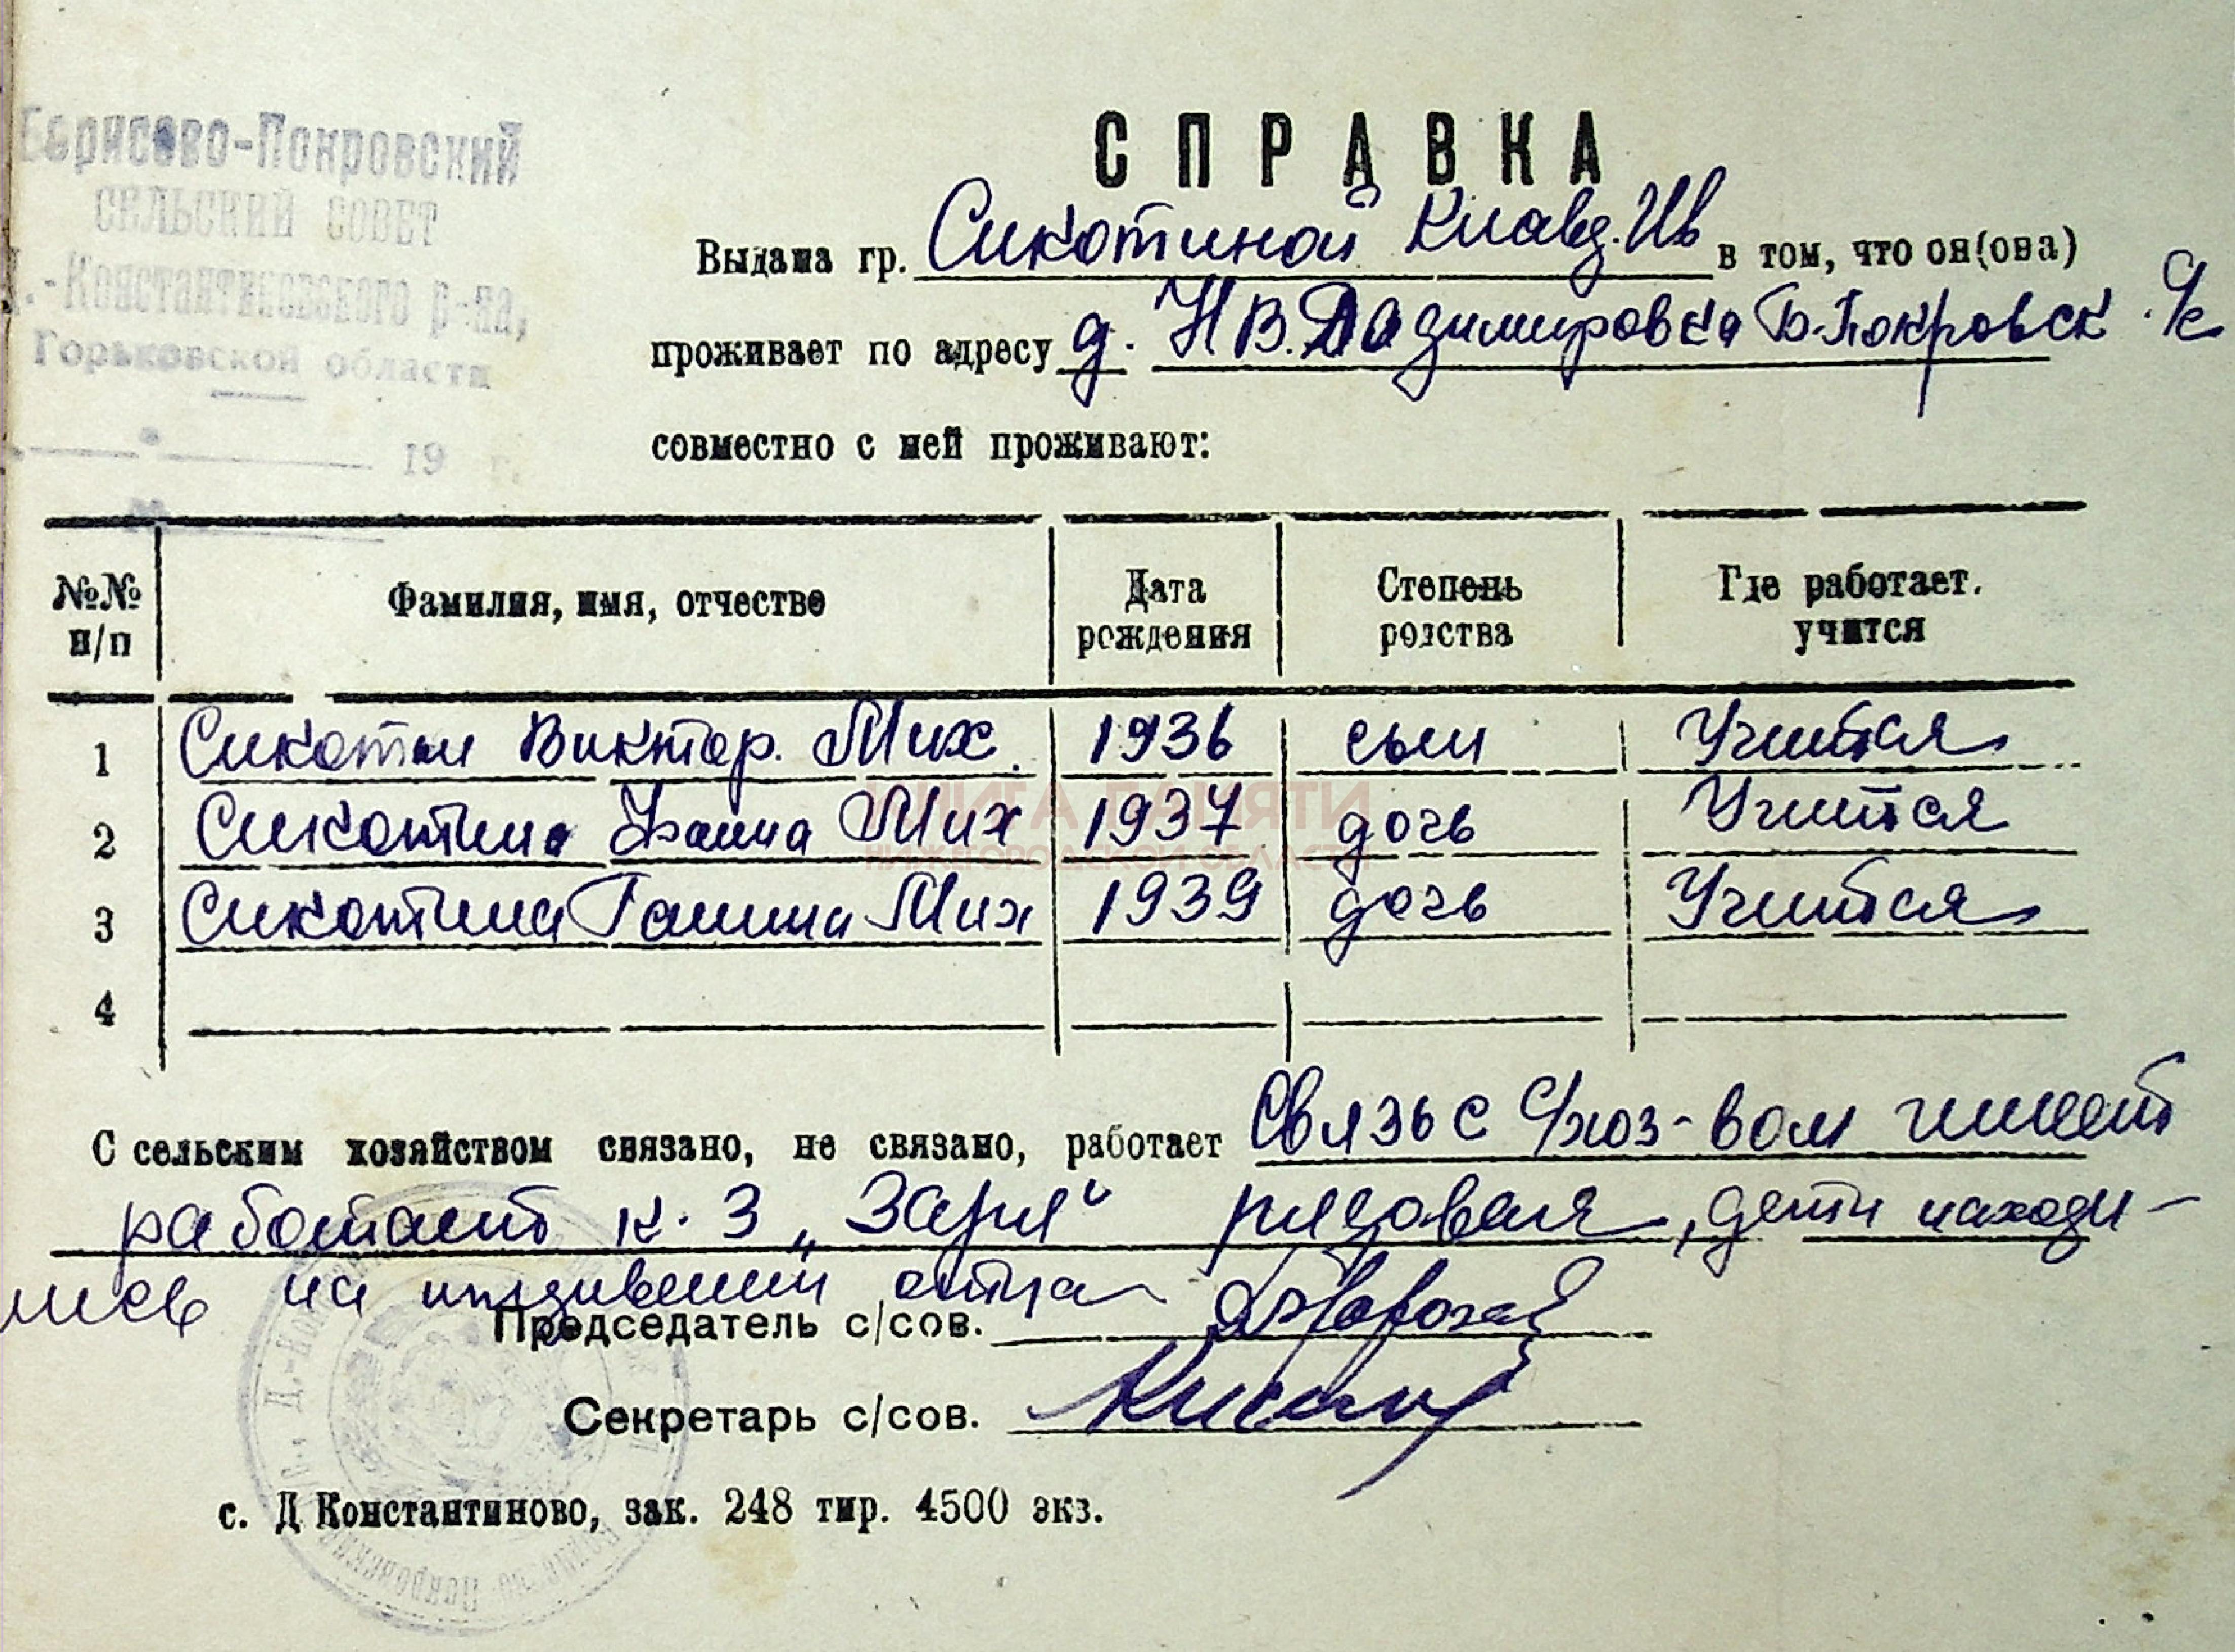 Борисово-Покровский
СЕЛЬСКИЙ СОВЕТ
Д.-Константиновского р-на,
Горьковской области
19 г.
СПРАВКА
Выдана гр. Сикотиной Клавд. Ив в том, что он(она)
проживает по адресу д. Нв. Владимировка Б-Покровск. с/с
совместно с ней проживают:
№№ н/п Фамилия, имя, отчество Дата рождения Степень родства Где работает. учится
1 Сикотин Виктор. Мих. 1936 сын Учится
2 Сикотина Фаина Мих 1937 дочь Учится
3 Сикотина Галина Мих 1939 дочь Учится
4
КНИГА ПАМЯТИ
НИЖЕГОРОДСКОЙ ОБЛАСТИ
С сельским хозяйством связано, не связано, работает Связь с с/хоз-вом имеет
работает к-з „Заря" рядовая, дети находи-
лись на иждивении отца
Председатель с/сов.
Секретарь с/сов.
с. Д Константиново, зак. 248 тир. 4500 экз.